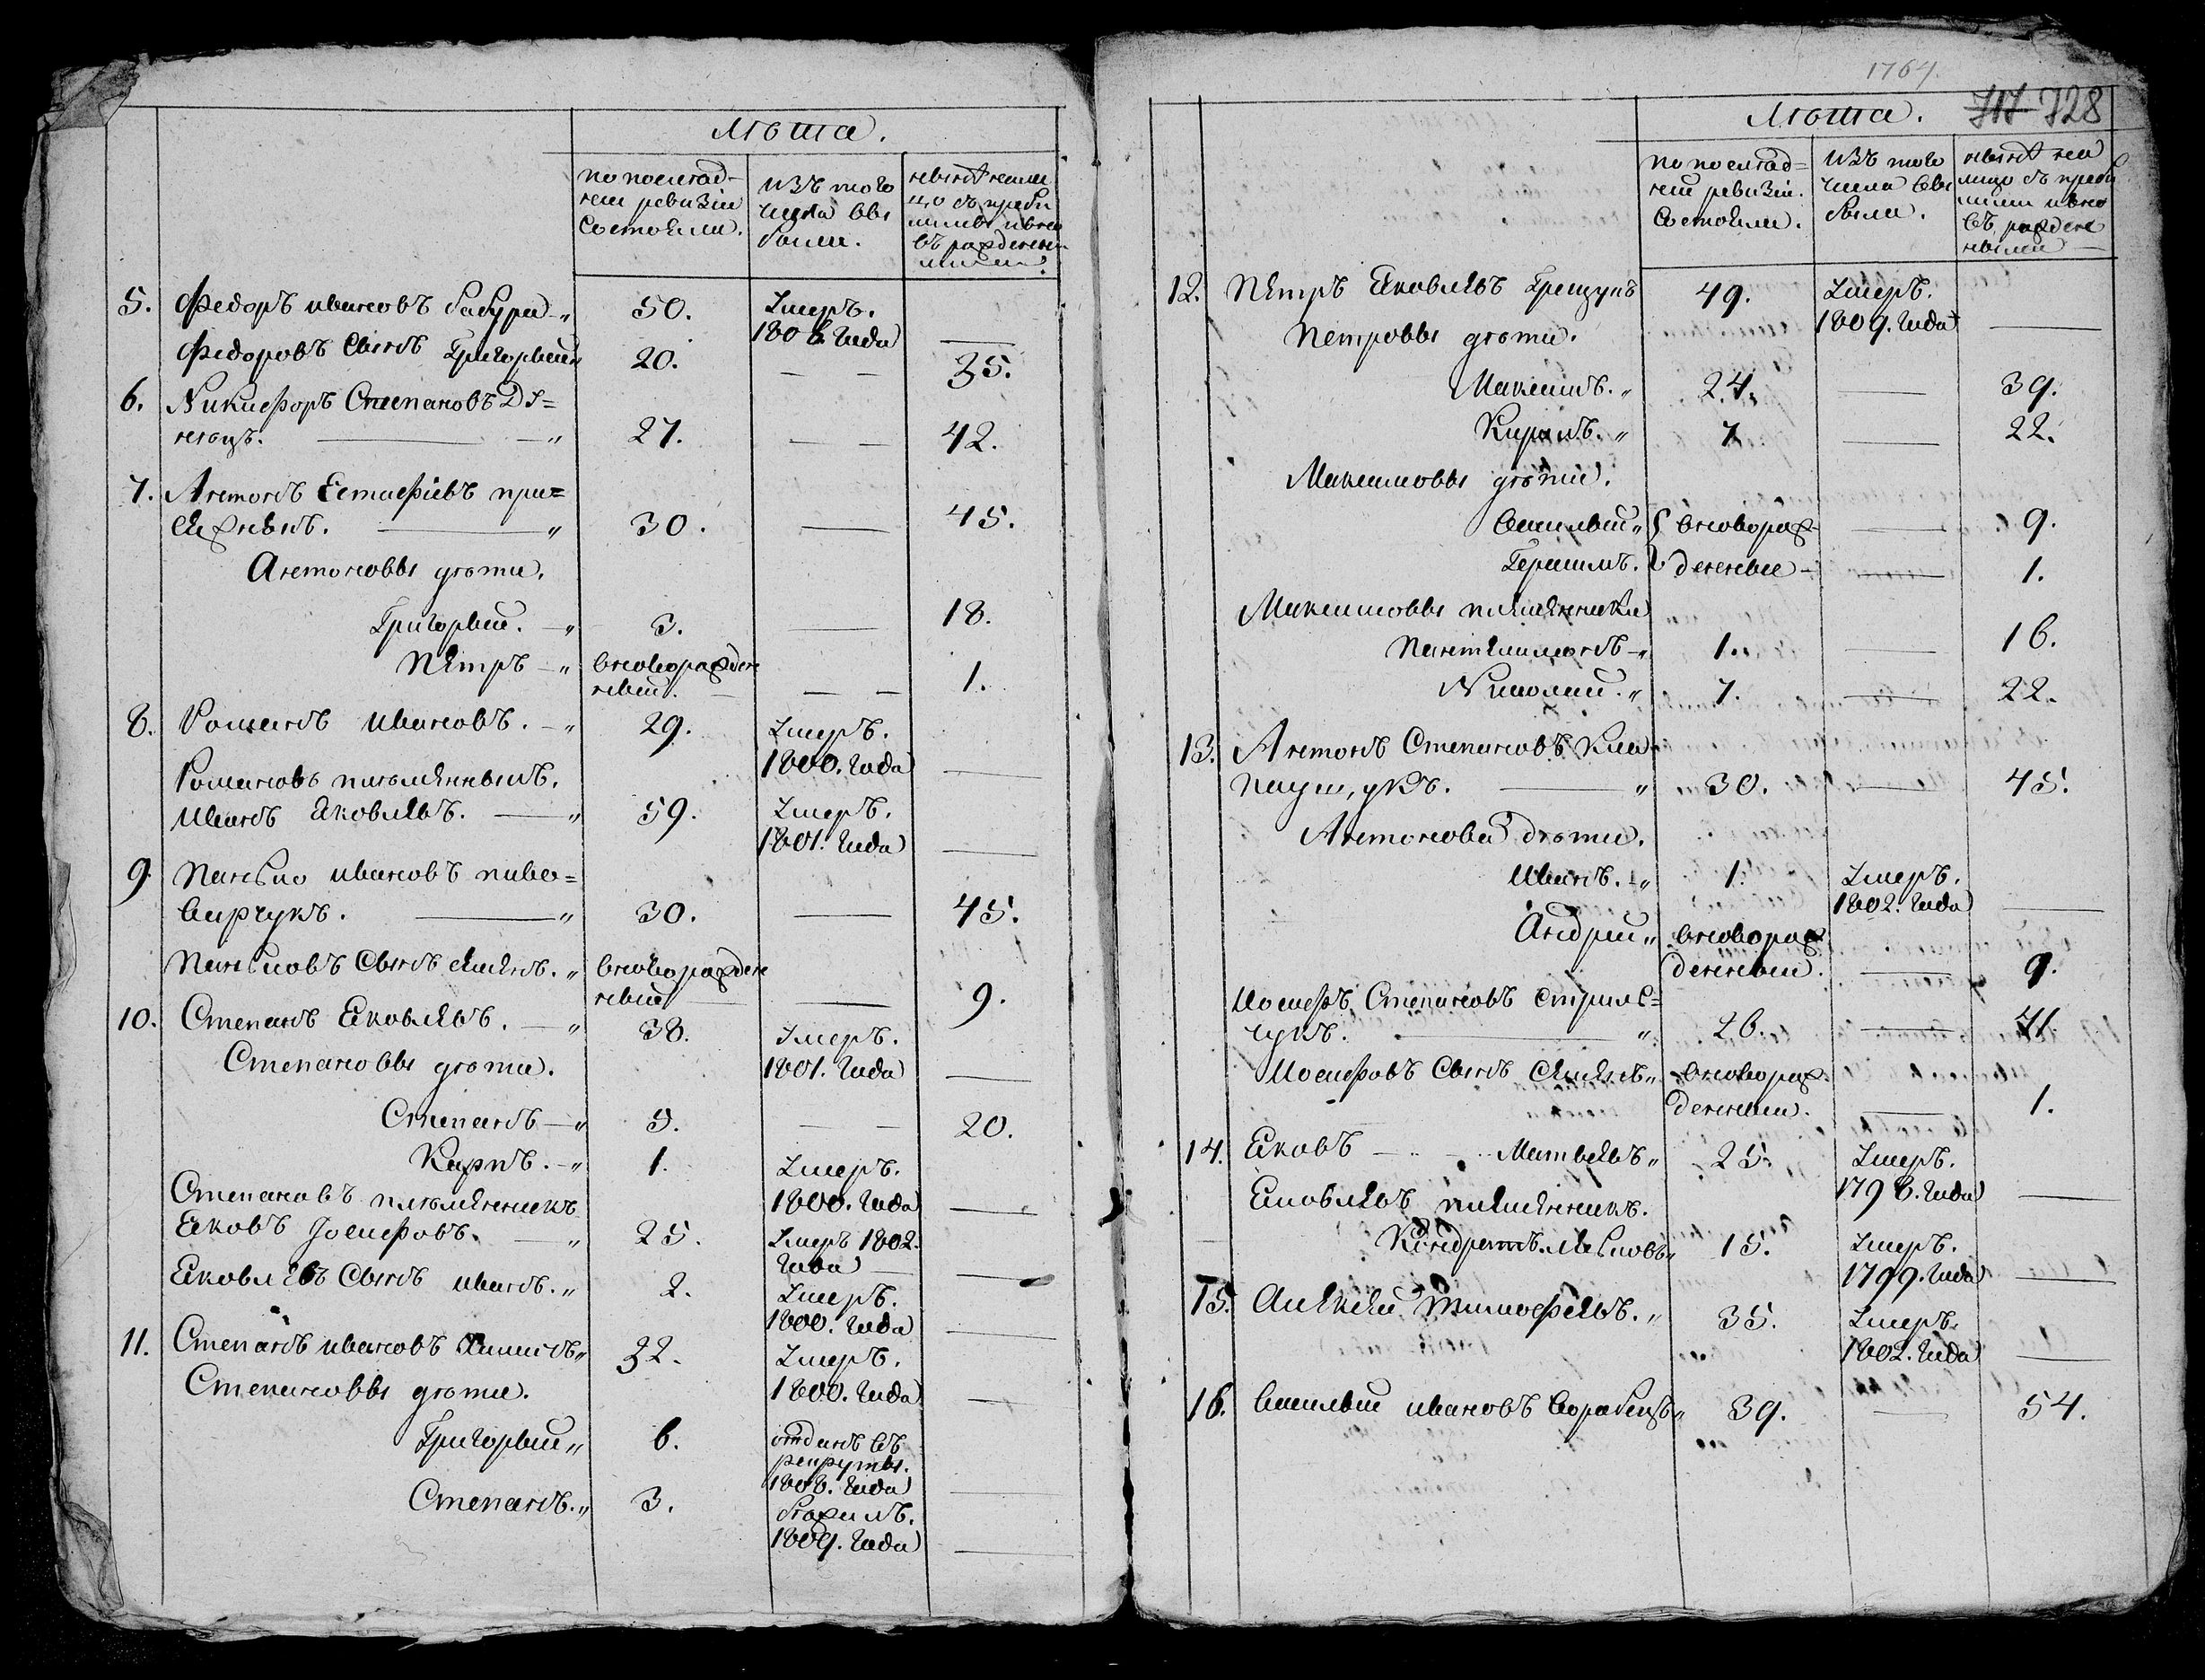 Лѣта.
по послѣд=
ней ревизіи
состояли.
изъ того
числа вы
были.
нынѣ на ли
цо съ прибы
лыми и вно
въ рожденны
ми.
5. Федоръ ивановъ Бабура „ 50. Умеръ.
1806. Года —
Федоровъ Сынъ Григорѣй „ 20. — — 35.
6. Никифоръ Степановъ Дѣ=
нещъ. „ 27. — — 42.
7. Антонъ Естафіевъ при=
сяжный. „ 30. — 45.
Антоновы дѣти.
Григорѣй. „ 3. — 18.
Петръ „ вноворожден
ный. — — 1.
8. Романъ ивановъ. „ 29. Умеръ.
1800. Года —
Романовъ племянникъ.
Иванъ Яковлевъ. „ 59. Умеръ.
1801. Года —
9. Панько ивановъ пиво=
варчукъ. „ 30. — 45.
Паньковъ Сынъ Семенъ. „ вноворожден
ный — 9.
10. Степанъ Яковлевъ. „ 38. Умеръ.
1801. Года —
Степановы дѣти.
Степанъ „ 5. — — 20.
Карпъ. „ 1. Умеръ.
1800. Года —
Степановъ племянникъ
Яковъ Іосифовъ. „ 25. Умеръ 1802.
Года —
Яковлевъ Сынъ иванъ. „ 2. Умеръ.
1800. Года —
11. Степанъ ивановъ „ 32. Умеръ.
1800. Года —
Степановы дѣти.
Григорѣй „ 6. отданъ въ
рекруты.
1806. Года —
Степанъ. „ 3. бѣжалъ.
1809. Года —
1764.
717 728
Лѣта.
по послѣд=
ней ревизіи.
состояли.
изъ того
числа вы
были.
нынѣ на
лицо съ прибы
лыми и вно
въ рожде
нными
12. Петръ Яковлевъ Грещукъ 49. Умеръ.
1809. Года —
Петровы дѣти.
Максимъ. „ 24. — 39.
Кирилъ. „ 7 — 22.
Максимовы дѣти.
Василѣй „ вноворож — 9.
Герасимъ. денные — 1.
Максимовы племянники
Пантелимонъ „ 1. — 16.
Николай. „ 7. — 22.
13. Антонъ Степановъ Кла=
паущукъ. „ 30. — 45.
Антонова дѣти.
Иванъ. „ 1. Умеръ.
1802. Года —
Андрей „ вноворож
денный. — 9.
Иосифъ Степановъ стрилѣ=
чукъ. „ 26. — 41.
Иосифовъ Сынъ Семенъ „ вноворож=
денный. — 1.
14. Яковъ — Матвеевъ „ 25. Умеръ.
1796. Года —
Яковлевъ племянникъ.
Кондратъ „ 15. Умеръ.
1799. Года —
15. Алексей Тимофеевъ. „ 35. Умеръ.
1802. Года —
16. Василѣй ивановъ Воробецъ „ 39. — 54.